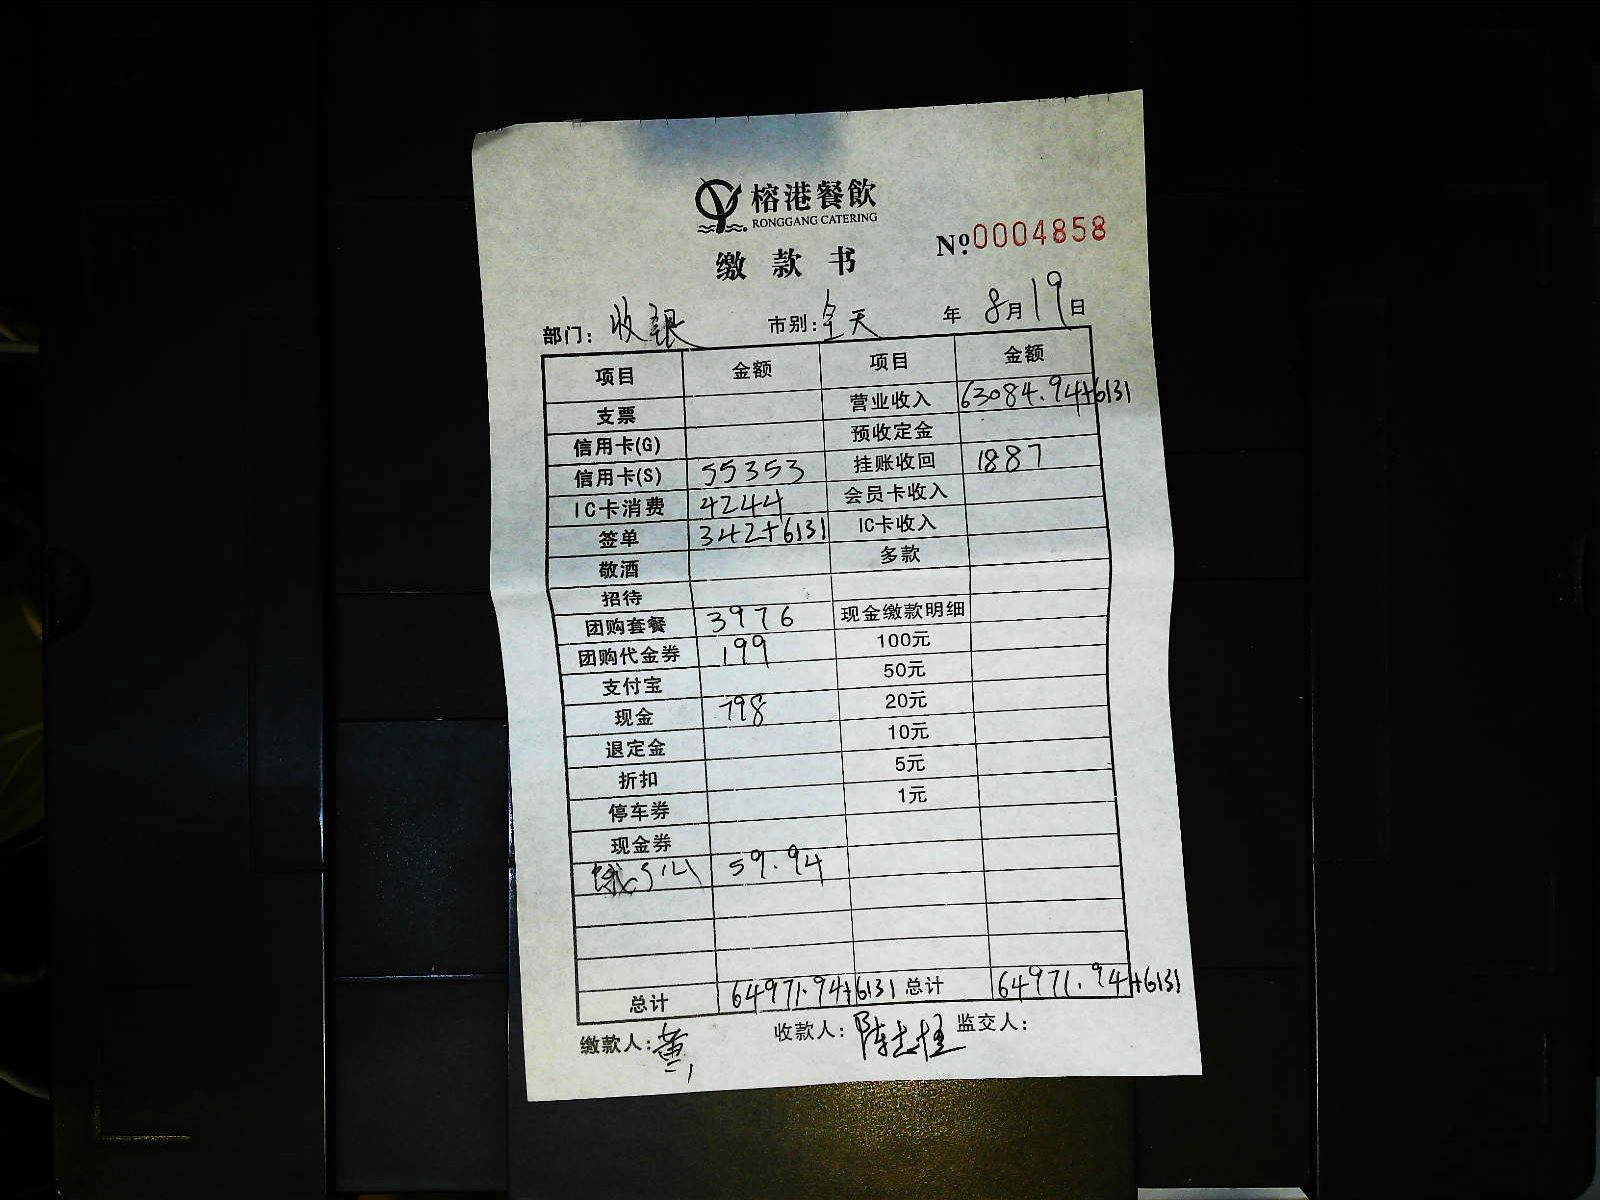 榕港餐飲
RONGGANG CATERING
缴款书
№0004858
部门：收银 市别：全天 年 8月19日
项目 金额 项目 金额
支票 营业收入 63084.94+6131
信用卡(G) 预收定金
信用卡(S) 55353 挂账收回 1887
IC卡消费 4244 会员卡收入
签单 342+6131 IC卡收入
敬酒 多款
招待
团购套餐 3976 现金缴款明细
团购代金券 199 100元
支付宝 50元
现金 798 20元
退定金 10元
折扣 5元
停车券 1元
现金券
59.94
总计 64971.94+6131 总计 64971.94+6131
缴款人：黄 收款人：陈 监交人：